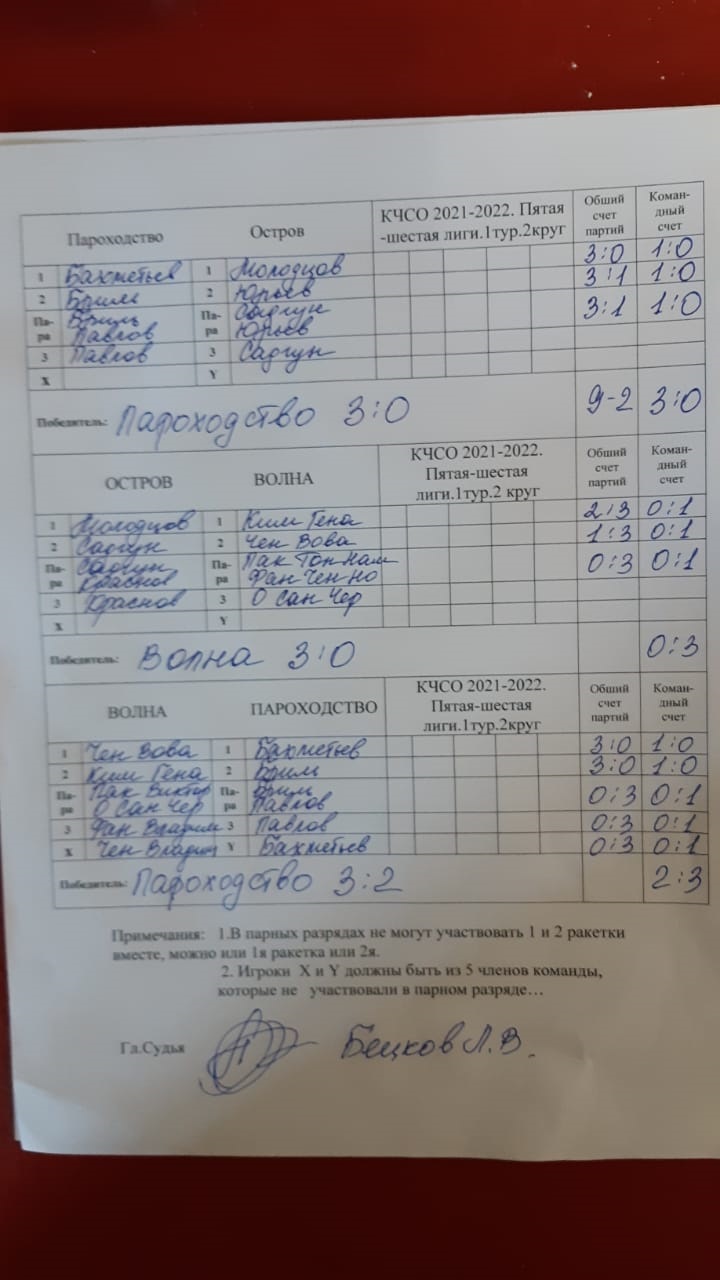 Пароходство Остров КЧСО 2021-2022. Пятая -шестая лиги.1тур.2круг Общий счет партий Коман- дный счет
1 Бахметьев 1 Молодцов 3:0 1:0
2 Бриль 2 Юрьев 3:1 1:0
Па- ра Бриль Павлов Па- ра Садгун Юрьев 3:1 1:0
3 Павлов 3 Садгун
X Y
Победитель: Пароходство 3:0 9-2 3:0
ОСТРОВ ВОЛНА КЧСО 2021-2022. Пятая-шестая лиги.1тур.2 круг Общий счет партий Коман- дный счет
1 Молодцов 1 Ким Гена 2:3 0:1
2 Садгун 2 Чен Вова 1:3 0:1
Па- ра Садгун Краснов Па- ра Пак Тон Нам Фан Чен Но 0:3 0:1
3 Краснов 3 О Сан Чер
X Y
Победитель: Волна 3:0 0:3
ВОЛНА ПАРОХОДСТВО КЧСО 2021-2022. Пятая-шестая лиги.1тур.2круг Общий счет партий Коман- дный счет
1 Чен Вова 1 Бахметьев 3:0 1:0
2 Ким Гена 2 Бриль 3:0 1:0
Па- ра Пак Виктор О Сан Чер Па- ра Бриль Павлов 0:3 0:1
3 Фан 3 Павлов 0:3 0:1
X Чен Y Бахметьев 0:3 0:1
Победитель: Пароходство 3:2 2:3
Примечания: 1.В парных разрядах не могут участвовать 1 и 2 ракетки
вместе, можно или 1я ракетка или 2я.
2. Игроки X и Y должны быть из 5 членов команды,
которые не участвовали в парном разряде…
Гл.Судья Бецков Л.В.